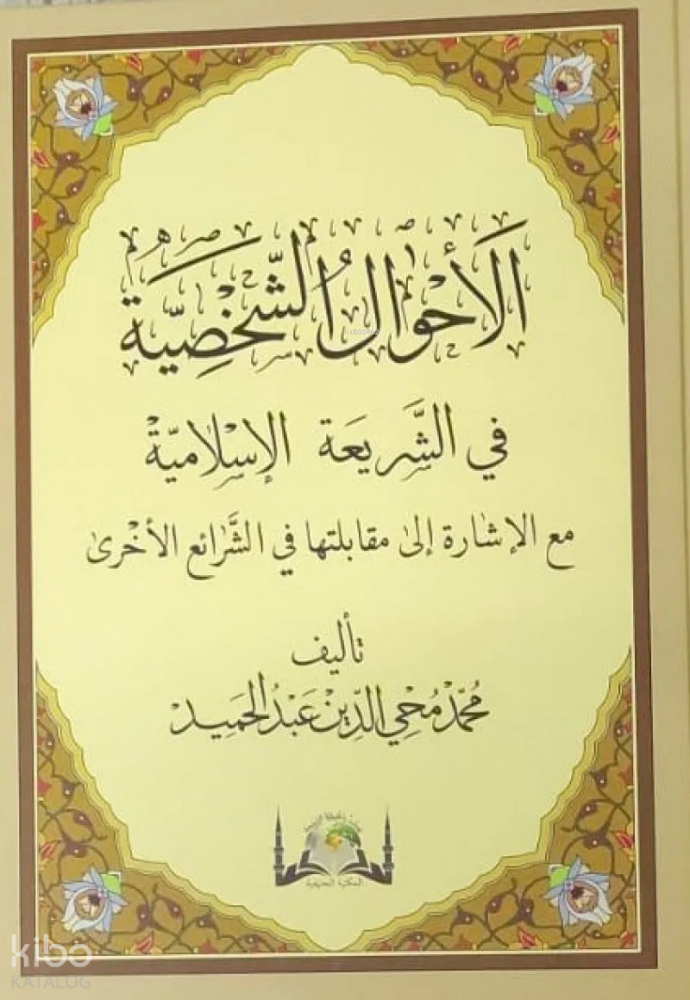 الأَحْوَالُ الشَّخْصِيَّة
في الشَّرِيعَة الإِسْلَاميَّة
مع الإشارة إلى مقابلتها في الشَّرائع الأخرى
تأليف
محمّد مُحْيِي الدِّين عَبْدُ الحَمِيد
المكتبة الحنيفية
kibo
KATALOG